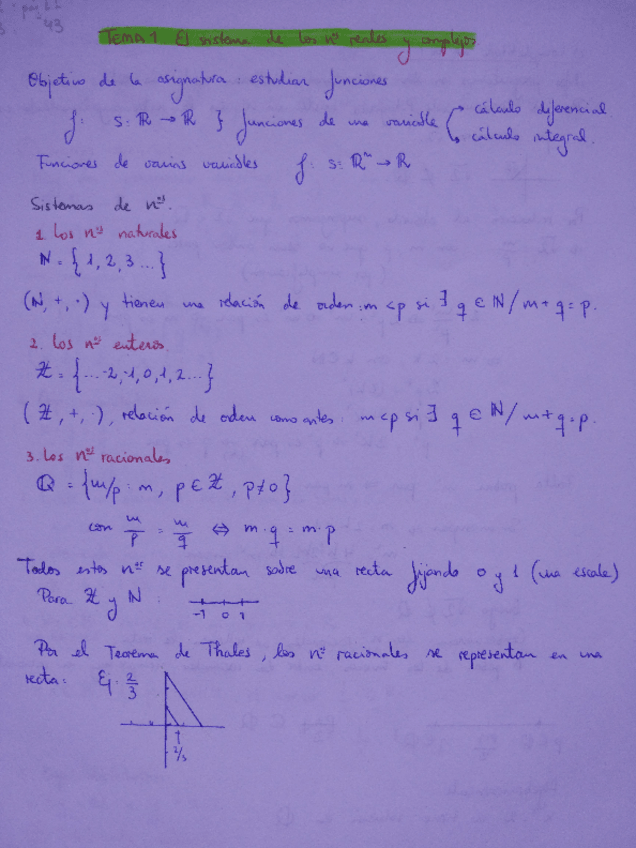 43
TEMA 1 El sistema de los nºs reales y complejos
Objetivo de la asignatura: estudiar funciones
f: s: ℝ → ℝ } funciones de una variable → cálculo diferencial
→ cálculo integral.
Funciones de varias variables f: s: ℝⁿ → ℝ
Sistemas de nºs.
1. Los nºs naturales
ℕ = {1, 2, 3 ...}
(ℕ, +, ·) y tienen una relación de orden: m < p si ∃ q ∈ ℕ / m + q = p.
2. Los nºs enteros.
ℤ = {... -2, -1, 0, 1, 2 ...}
(ℤ, +, ·), relación de orden como antes: m < p si ∃ q ∈ ℕ / m + q = p.
3. Los nºs racionales
ℚ = {m/p : m, p ∈ ℤ, p ≠ 0}
con m/p = m/q ⇔ m · q = m · p
Todos estos nºs se presentan sobre una recta fijando 0 y 1 (una escala)
Para ℤ y ℕ :
-1 0 1
Por el Teorema de Thales, los nºs racionales se representan en una
recta: Ej. 2/3
1
2/3